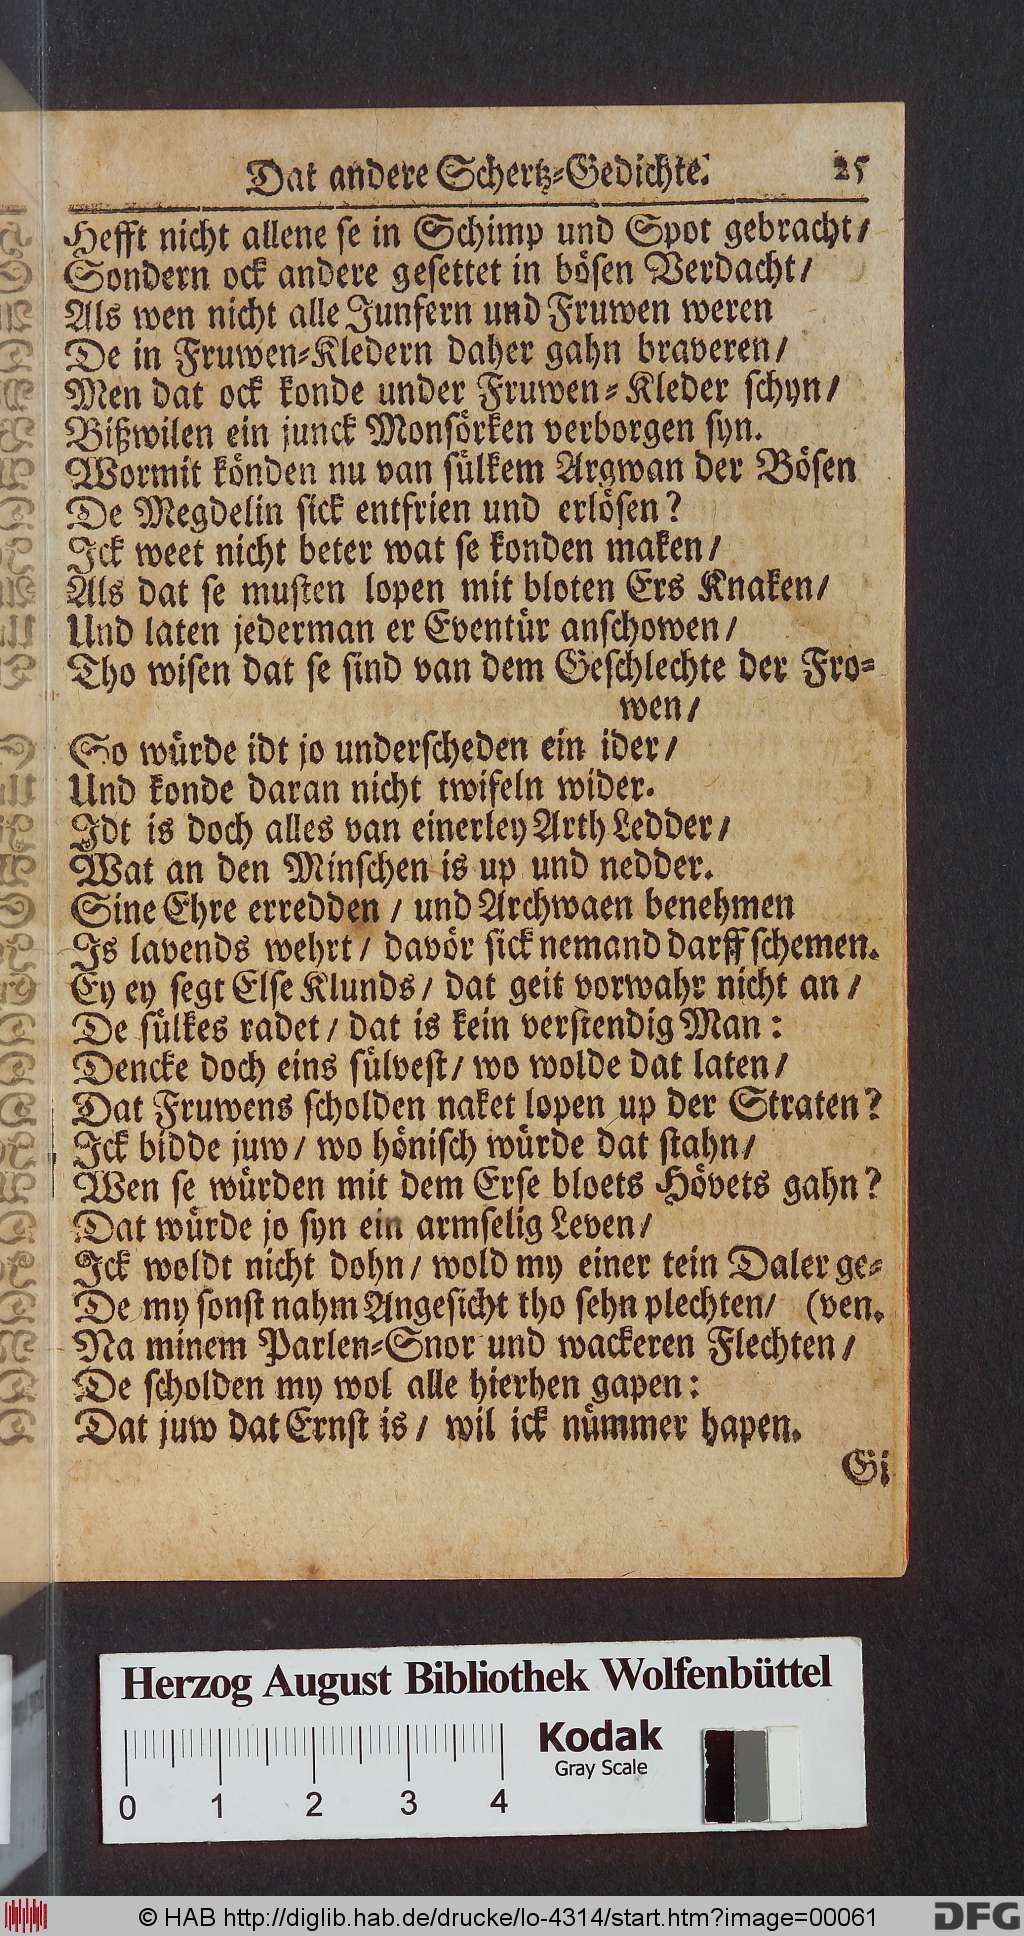 Dat andere Schertz-Gedichte. 25
Hefft nicht allene se in Schimp und Spot gebracht/
Sondern ock andere gesettet in bösen Verdacht/
Als wen nicht alle Junfern und Fruwen weren
De in Fruwen-Kledern daher gahn braveren/
Men dat ock konde under Fruwen-Kleder schyn/
Bißwilen ein junck Monsörken verborgen syn.
Wormit könden nu van sülkem Argwan der Bösen
De Megdelin sick entfrien und erlösen?
Ick weet nicht beter wat se konden maken/
Als dat se musten lopen mit bloten Ers Knaken/
Und laten jederman er Eventür anschowen/
Tho wisen dat se sind van dem Geschlechte der Fro-
wen/
So würde idt jo underscheden ein ider/
Und konde daran nicht twifeln wider.
Idt is doch alles van einerley Arth Ledder/
Wat an den Minschen is up und nedder.
Sine Ehre erredden / und Archwaen benehmen
Is lavends wehrt/ davör sick nemand darff schemen.
Ey ey segt Else Klunds/ dat geit vorwahr nicht an /
De sülkes radet/ dat is kein verstendig Man:
Dencke doch eins sülvest/ wo wolde dat laten/
Dat Fruwens scholden naket lopen up der Straten?
Ick bidde juw/ wo hönisch würde dat stahn/
Wen se würden mit dem Erse bloets Hövets gahn?
Dat würde jo syn ein armselig Leven/
Ick woldt nicht dohn/ wold my einer tein Daler ge-
De my sonst nahm Angesicht tho sehn plechten/ (ven.
Na minem Parlen-Snor und wackeren Flechten/
De scholden my wol alle hierhen gapen:
Dat juw dat Ernst is/ wil ick nümmer hapen.
Gi
Herzog August Bibliothek Wolfenbüttel
Kodak
Gray Scale
0 1 2 3 4
© HAB http://diglib.hab.de/drucke/lo-4314/start.htm?image=00061
DFG